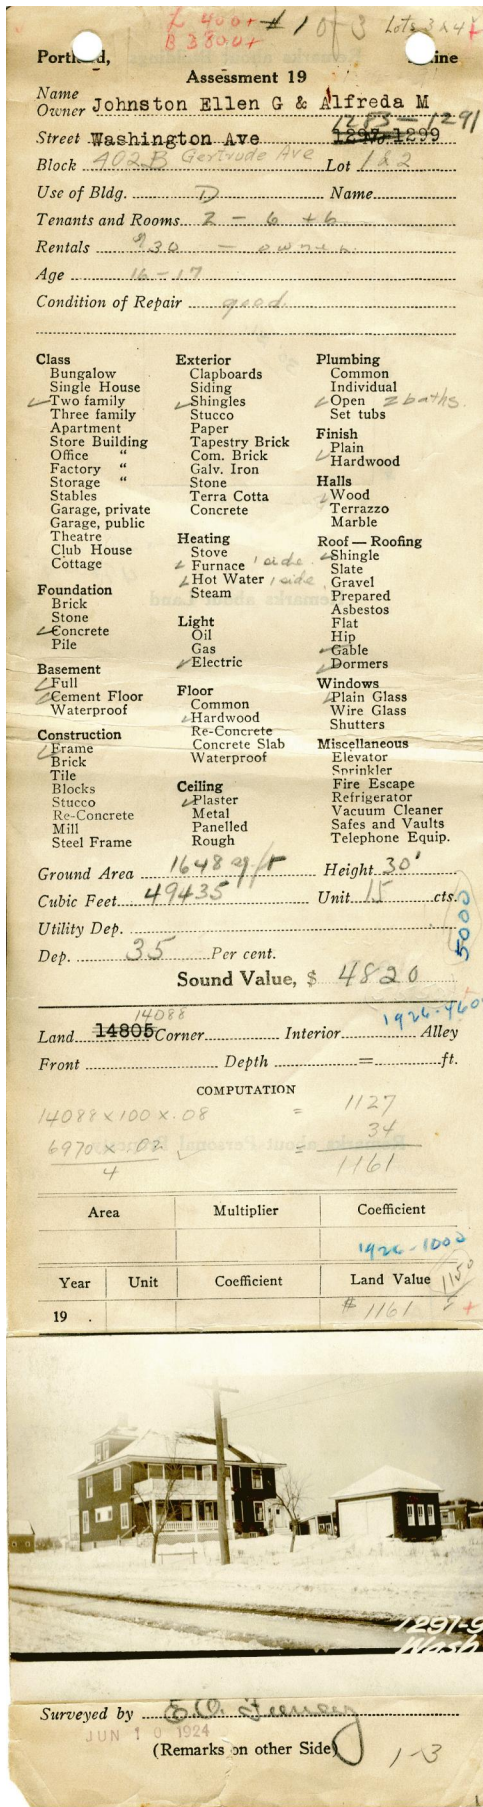 L 400+ # 1 of 3 Lots 3 & 4
B 3800+
Portland, Maine
Assessment 19
Name
Owner Johnston Ellen G & Alfreda M
1283-1291
Street Washington Ave 1297-1299
Block 402B Gertrude Ave Lot 1 & 2
Use of Bldg. D Name
Tenants and Rooms 2 - 6 + 6
Rentals $30 - owner
Age 16-17
Condition of Repair good
Class
Bungalow
Single House
✓ Two family
Three family
Apartment
Store Building
Office "
Factory "
Storage "
Stables
Garage, private
Garage, public
Theatre
Club House
Cottage
Foundation
Brick
Stone
✓ Concrete
Pile
Basement
✓ Full
✓ Cement Floor
Waterproof
Construction
✓ Frame
Brick
Tile
Blocks
Stucco
Re-Concrete
Mill
Steel Frame
Exterior
Clapboards
Siding
✓ Shingles
Stucco
Paper
Tapestry Brick
Com. Brick
Galv. Iron
Stone
Terra Cotta
Concrete
Heating
Stove
✓ Furnace 1 side
✓ Hot Water 1 side
Steam
Light
Oil
Gas
✓ Electric
Floor
Common
✓ Hardwood
Re-Concrete
Concrete Slab
Waterproof
Ceiling
✓ Plaster
Metal
Panelled
Rough
Plumbing
Common
Individual
✓ Open 2 baths
Set tubs
Finish
✓ Plain
✓ Hardwood
Halls
✓ Wood
Terrazzo
Marble
Roof — Roofing
✓ Shingle
Slate
Gravel
Prepared
Asbestos
Flat
Hip
✓ Gable
✓ Dormers
Windows
✓ Plain Glass
Wire Glass
Shutters
Miscellaneous
Elevator
Sprinkler
Fire Escape
Refrigerator
Vacuum Cleaner
Safes and Vaults
Telephone Equip.
Ground Area 1648 sq ft Height 30'
Cubic Feet 49435 Unit 15 cts.
5000
Utility Dep.
Dep. 35 Per cent.
Sound Value, $ 4820
14088
Land 14805 Corner Interior Alley
Front Depth = ft.
COMPUTATION
14088 x 100 x .08 = 1127
6970 x .02 = 34
4 1161
Area Multiplier Coefficient
1926-1000
Year Unit Coefficient Land Value 1150
19 . # 1161
1297-9
Wash
Surveyed by
JUN 10 1924
(Remarks on other Side)
1-3